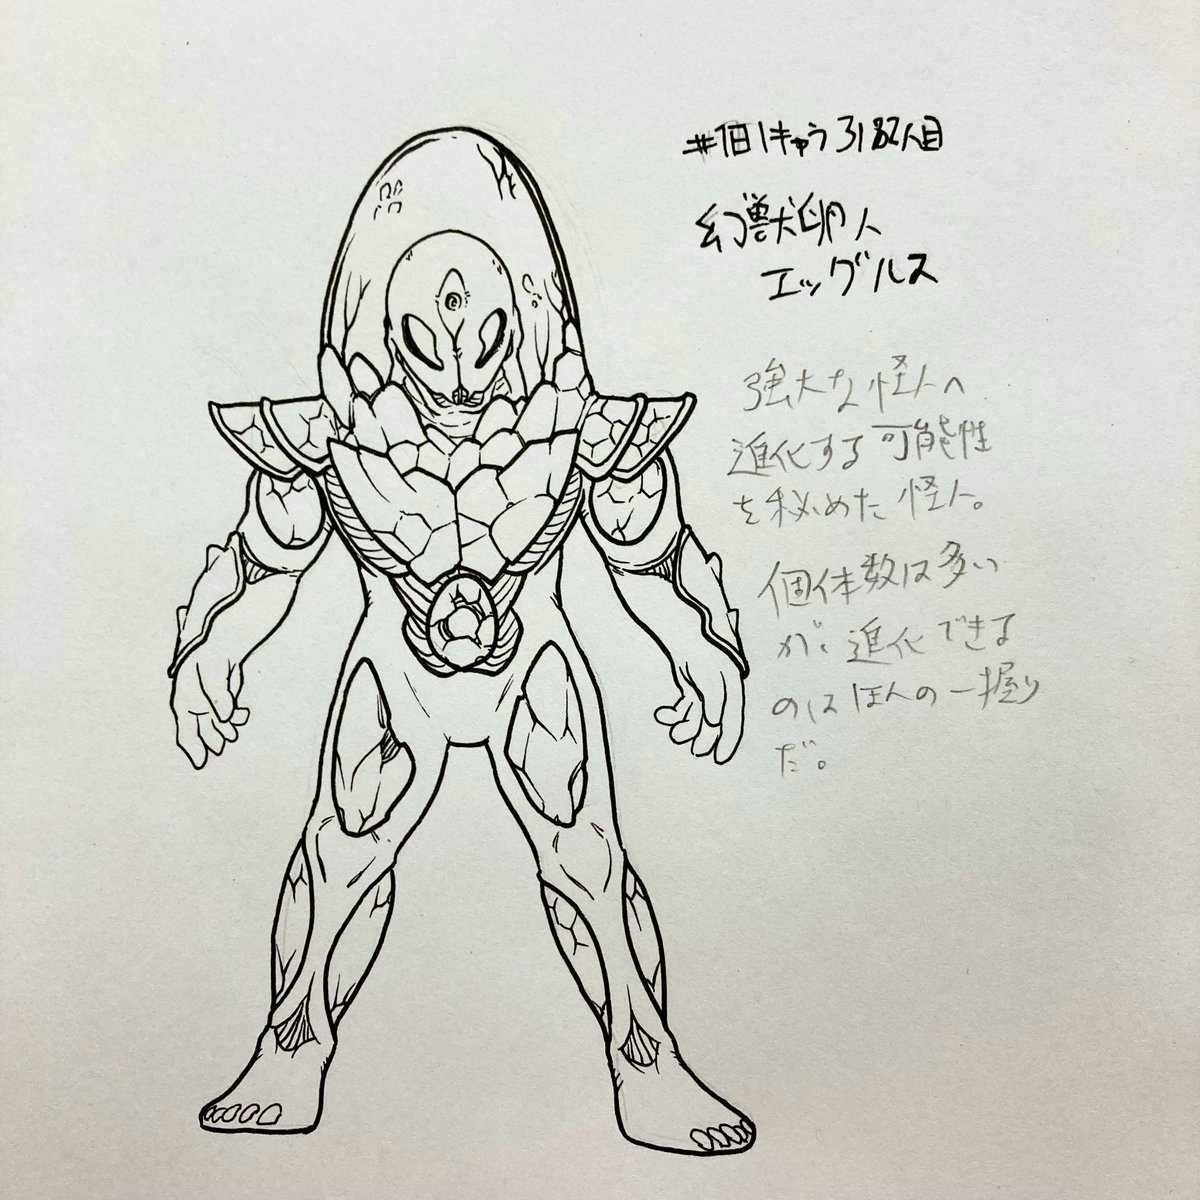 #1日1きゃら 3182人目
幻獣卵人
エッグルス
強大な怪人へ
進化する可能性
を秘めた怪人。
個体数は多い
が、進化できる
のはほんの一握り
だ。